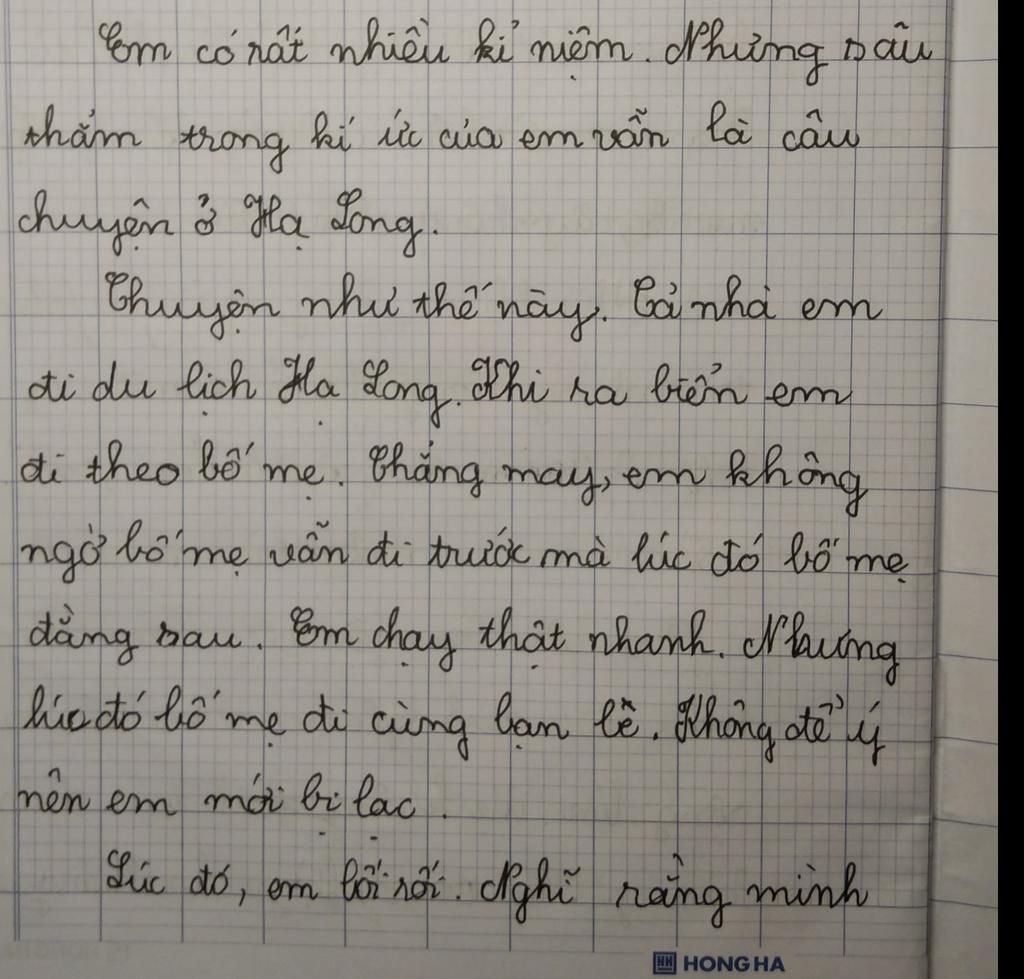 Em có rất nhiều kỉ niệm. Nhưng sâu
thẳm trong kí ức của em vẫn là câu
chuyện ở Hạ Long.
Chuyện như thế này. Cả nhà em
đi du lịch Hạ Long. Khi ra biển em
đi theo bố mẹ. Chẳng may, em không
ngờ bố mẹ vẫn đi trước mà lúc đó bố mẹ
đằng sau. Em chạy thật nhanh. Nhưng
lúc đó bố mẹ đi cùng bạn bè. Không để ý
nên em mới bị lạc.
Lúc đó, em bối rối. Nghĩ rằng mình
HONG HA